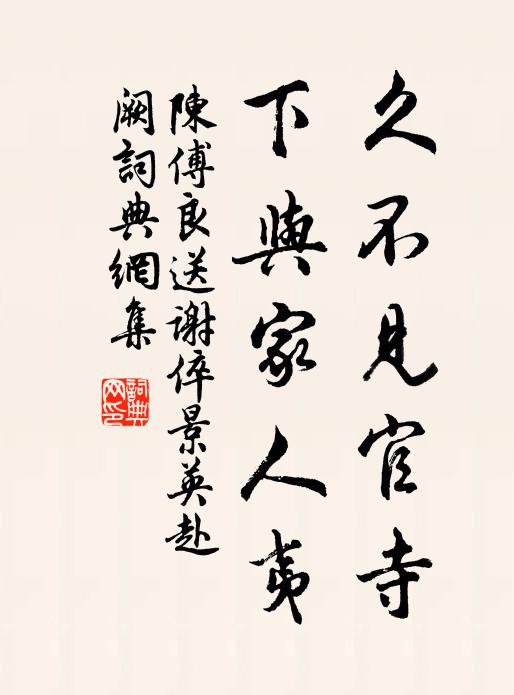 久不見官寺
下與家人夷
陳傅良送謝倅景英赴
闕詞典網集
詞典
网印